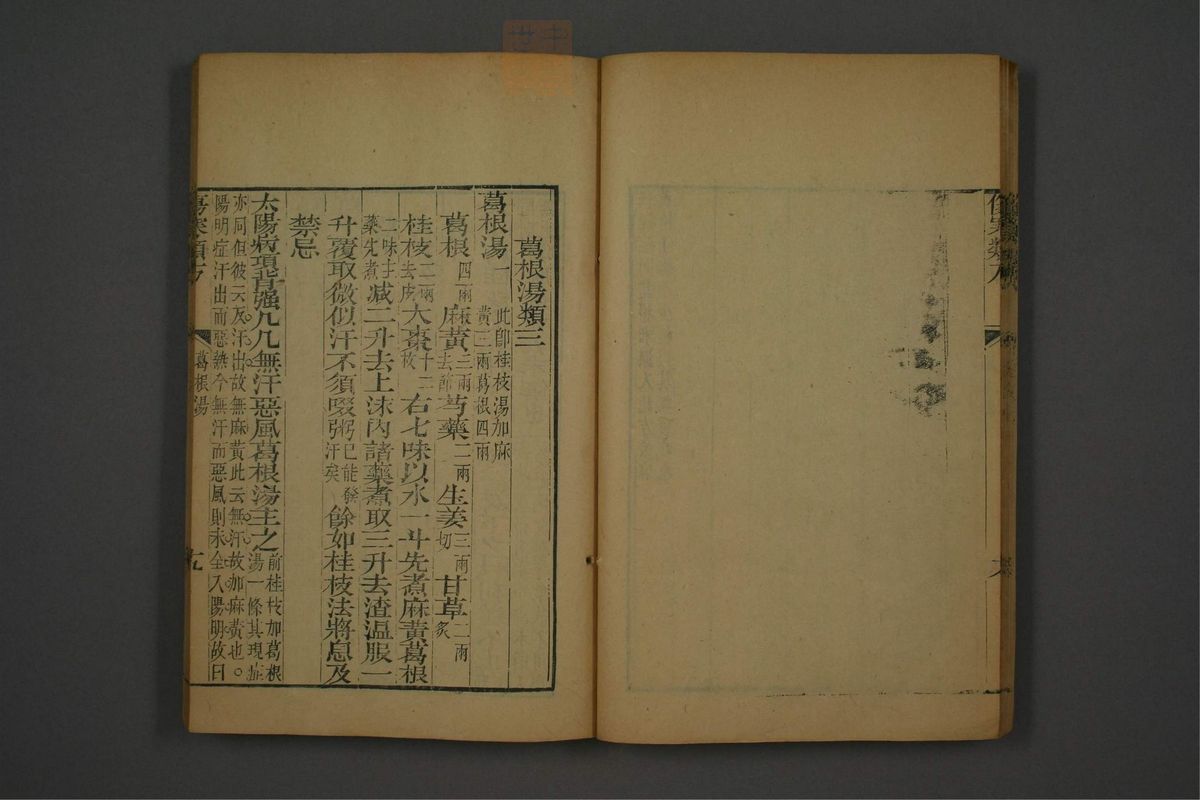 葛根湯類三
葛根湯一 此卽桂枝湯加麻黃三兩葛根四兩
葛根四兩 麻黃三兩去節 芍藥二兩 生姜三兩切 甘草二兩炙
桂枝二兩去皮 大棗十二枚 右七味以水一斗先煮麻黃葛根
二味主藥先煮 减二升去上沫內諸藥煮取三升去渣温服一
升覆取微似汗不須啜粥已能發汗矣 餘如桂枝法將息及
禁忌
太陽病項背强几几無汗惡風葛根湯主之 前桂枝加葛根湯一條其現症
亦同但彼云反汗出故無麻黃此云無汗故加麻黃也。
陽明症汗出而惡熱今無汗而惡風則未全入陽明故曰
傷寒類方 葛根湯